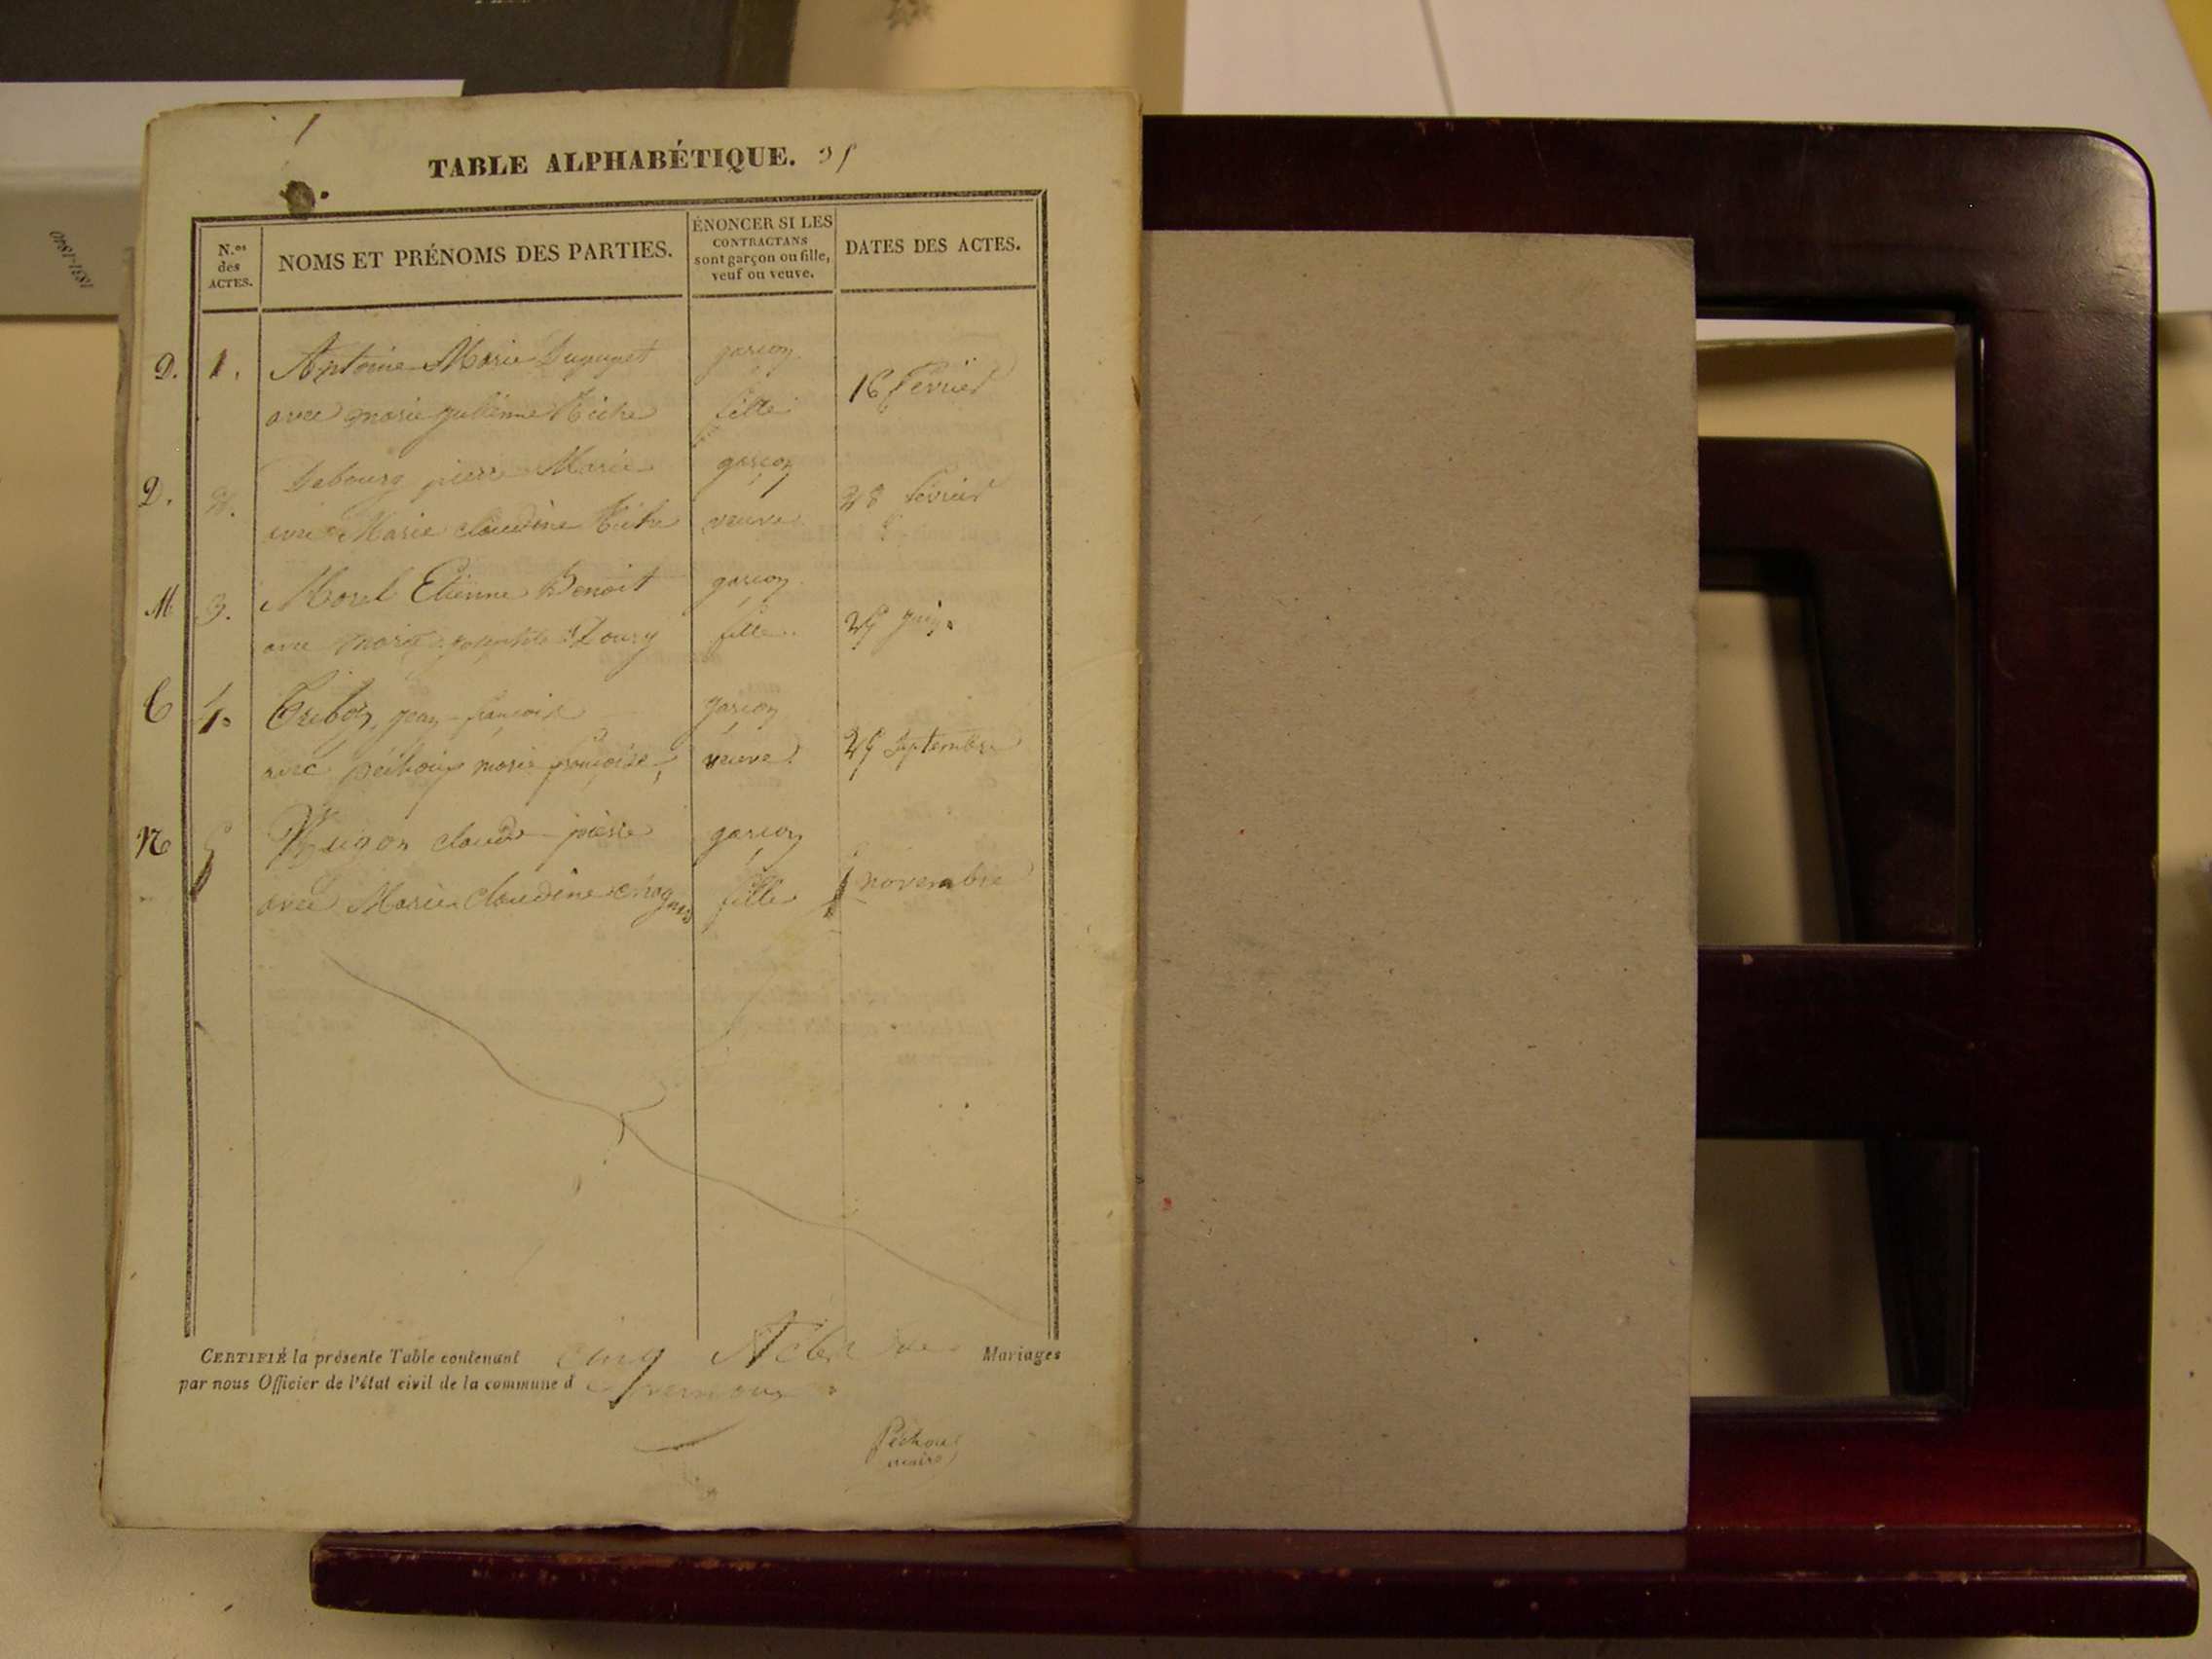 1831-1840
TABLE ALPHABÉTIQUE. 35
N.os des ACTES.
NOMS ET PRÉNOMS DES PARTIES.
ÉNONCER SI LES CONTRACTANS sont garçon ou fille, veuf ou veuve.
DATES DES ACTES.
D. 1. Antoine Marie garçon
avec marie julienne fille 16 février
D. 2. Debourg pierre Marie garçon
avec Marie claudine veuve 28 février
M 3. Morel Etienne Benoit garçon
avec marie fille 25 juin
C 4. jean françois garçon
avec péchoux marie françoise veuve 25 septembre
N 5 Nugon claude pierre garçon
avec Marie Claudine fille 5 novembre
CERTIFIÉ la présente Table contenant cinq Actes de Mariages
par nous Officier de l'état civil de la commune d
Péchoux
maire